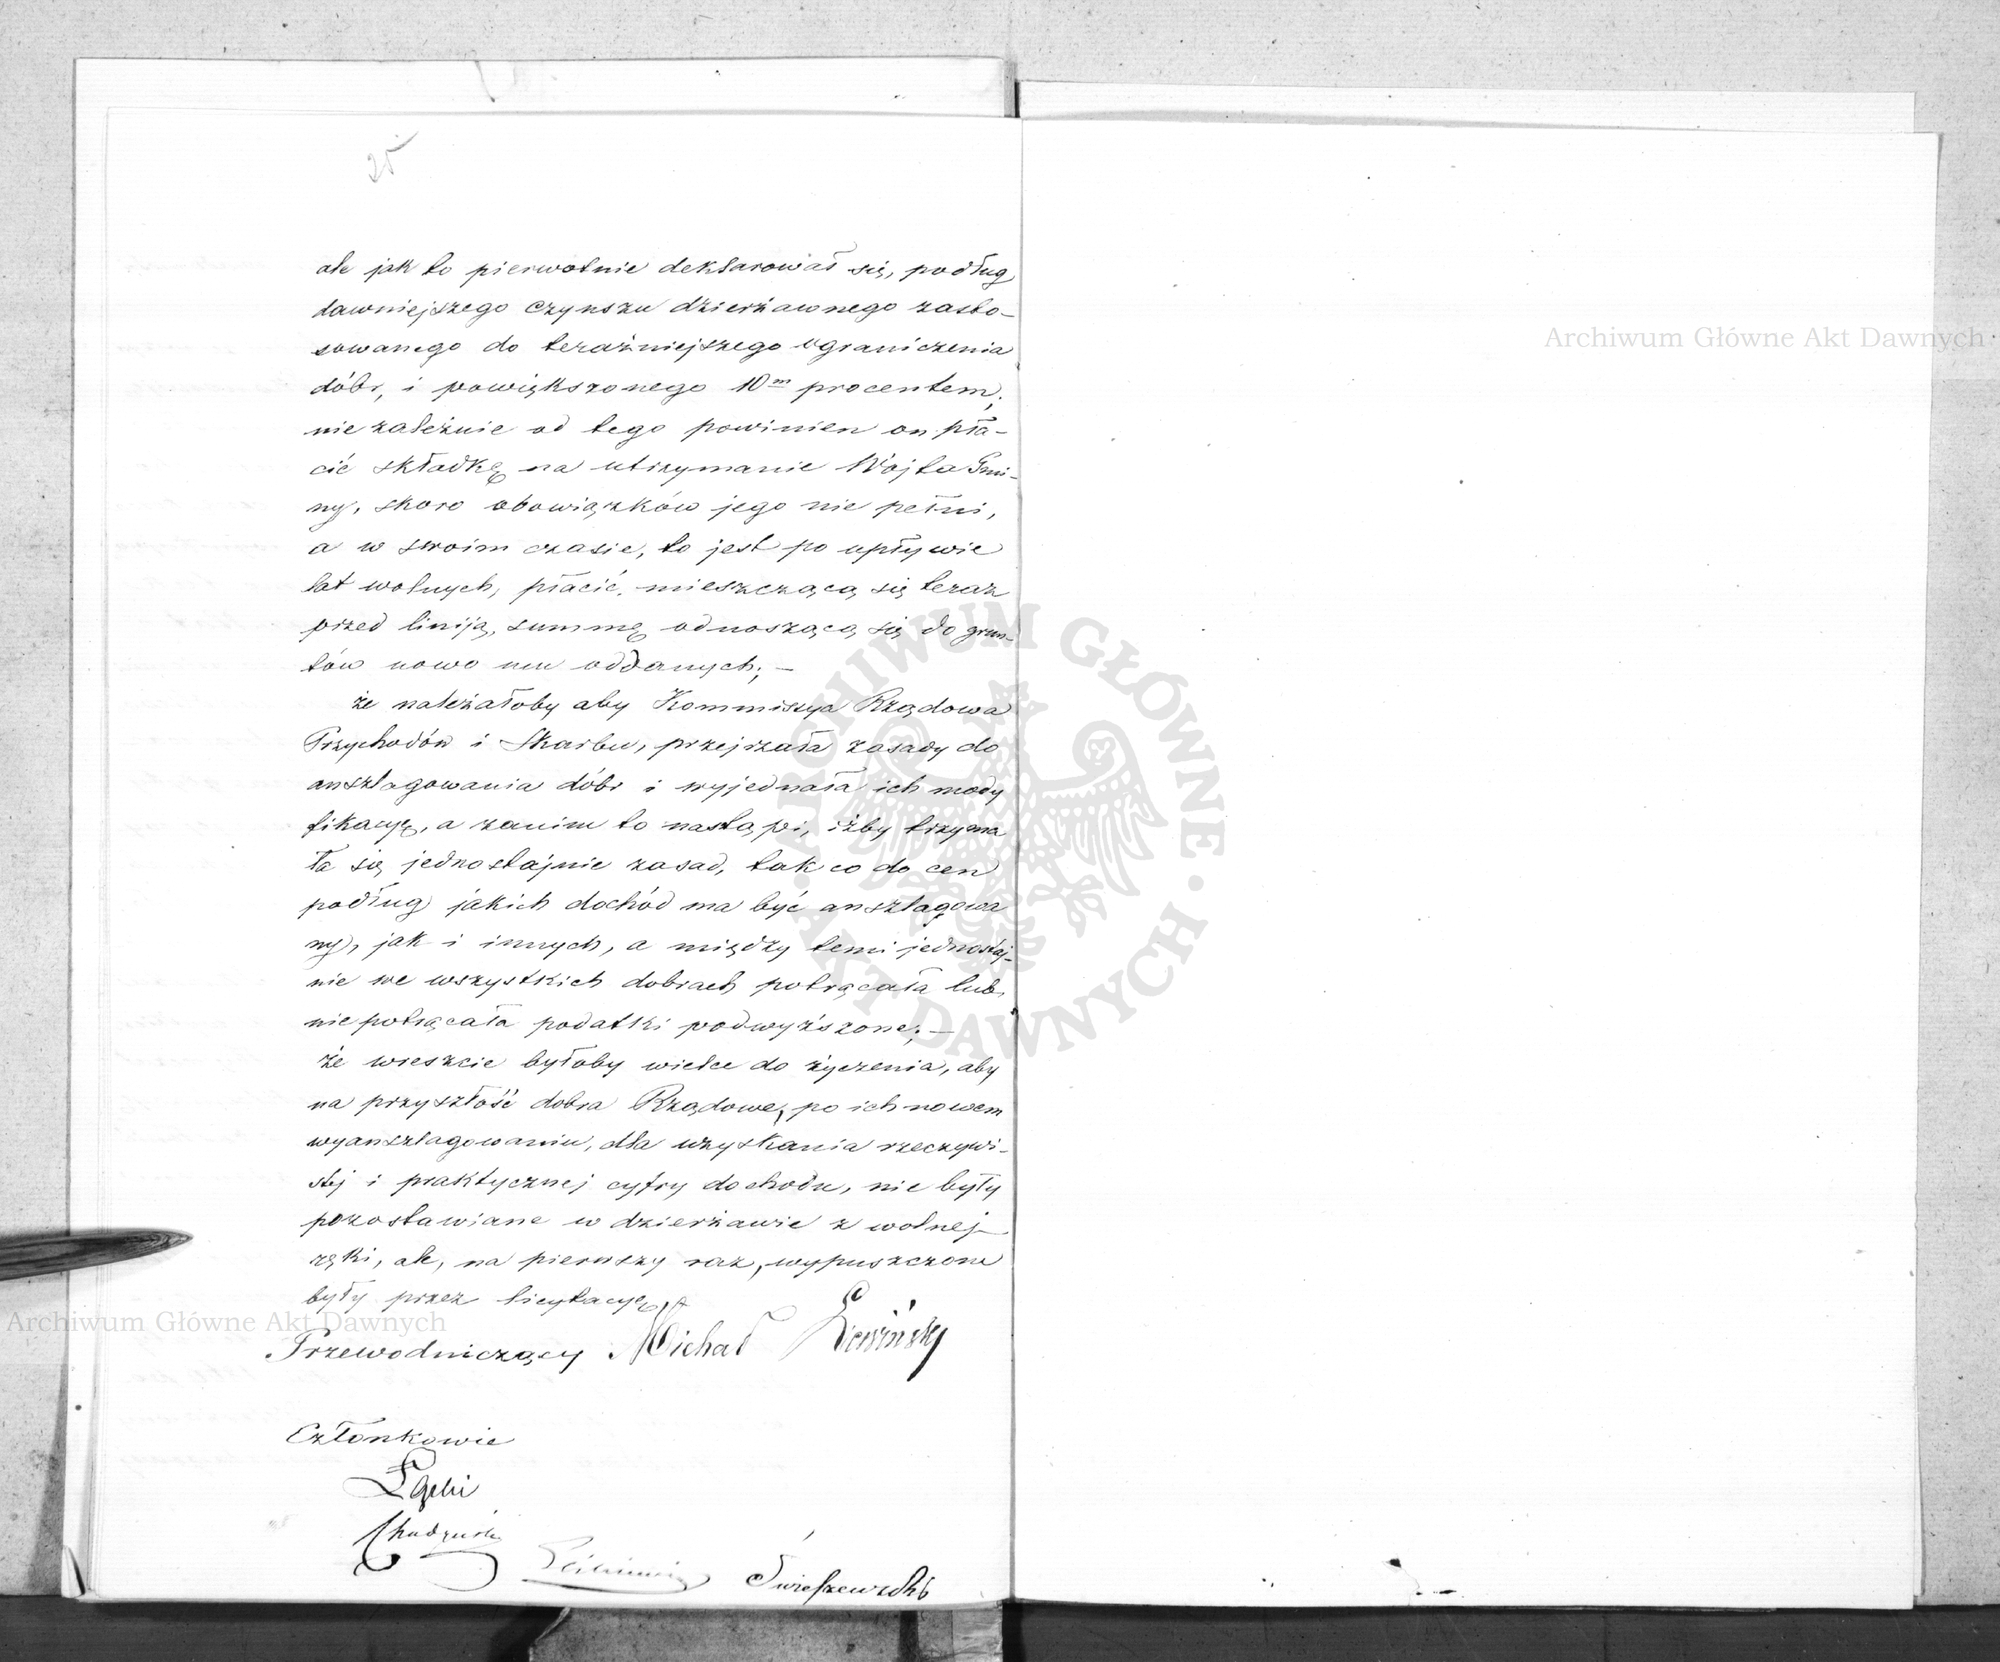 25
ale jak to pierwotnie deklarował się, podług
dawniejszego czynszu dzierżawnego zasto-
sowanego do teraźniejszego ograniczenia
dóbr, i powiększonego 10m procentem;
niezależnie od tego powinien on pła-
cić składkę na utrzymanie Wójta Gmi-
ny, skoro obowiązków jego nie pełni,
a w swoim czasie, to jest po upływie
lat wolnych, płacić, mieszczącą się teraz
przed liniją, summę odnoszącą się do grun-
tów nowo mu oddanych; —
że należałoby aby Kommissya Rządowa
Przychodów i Skarbu, przejrzała zasady do
anszlagowania dóbr i wyjednała ich mody
fikacyę, a zanim to nastąpi, iżby trzyma
ła się jednostajnie zasad, tak co do cen
podług jakich dochód ma być anszlagowa
ny, jak i innych, a między temi jednostaj-
nie we wszystkich dobrach potrącała lub
niepotrącała podatki podwyższone; —
że wreszcie byłoby wielce do życzenia, aby
na przyszłość dobra Rządowe, po ich nowem
wyanszlagowaniu, dla uzyskania rzeczywi-
stej i praktycznej cyfry dochodu, nie były
pozostawiane w dzierżawie z wolnej
ręki, ale, na pierwszy raz, wypuszczone
były przez licytacyę.
Przewodniczący Michał
Członkowie
Archiwum Główne Akt Dawnych
Archiwum Główne Akt Dawnych
ARCHIWUM GŁÓWNE AKT DAWNYCH